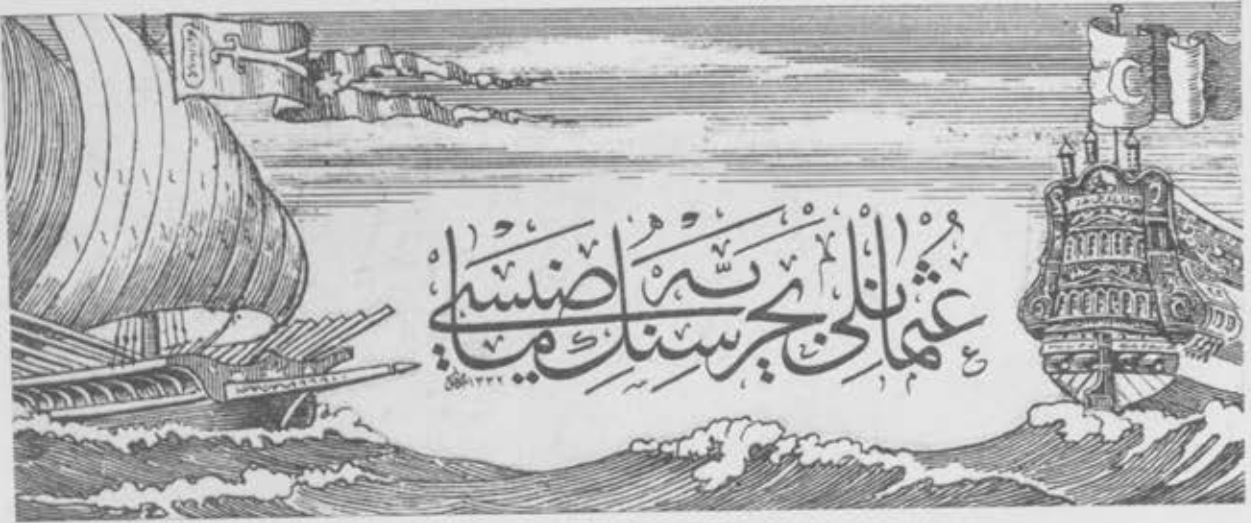 عثمانلى بحريه سنك ماضيسى
١٣٣٢